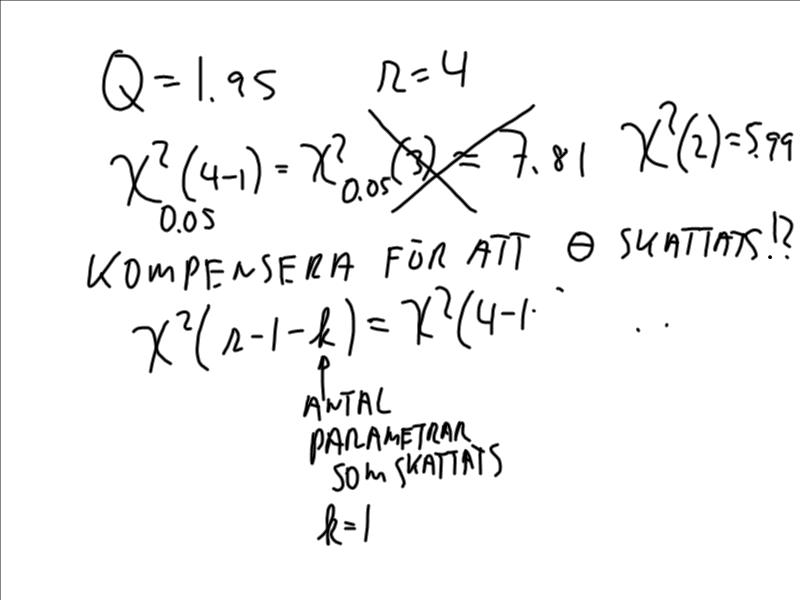 Q = 1.95 r = 4
χ²₀.₀₅(4-1) = χ²₀.₀₅(3) = 7.81 χ²(2) = 5.99
KOMPENSERA FÖR ATT Θ SKATTATS!?
χ²(r-1-k) = χ²(4-1
ANTAL
PARAMETRAR
SOM SKATTATS
k=1